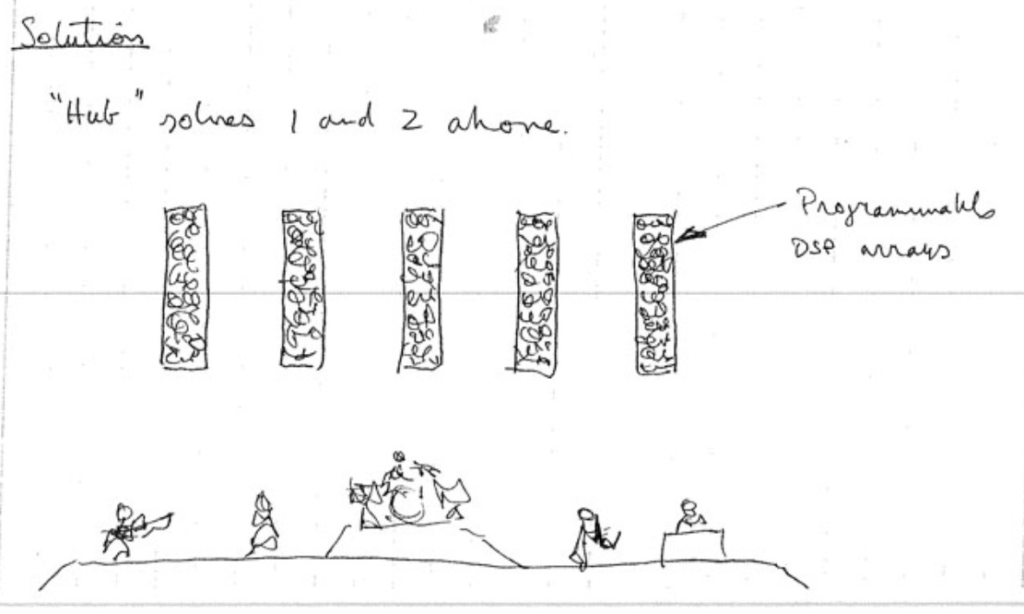 Solution
"Hub" solves 1 and 2 above.
Programmable
DSP arrays